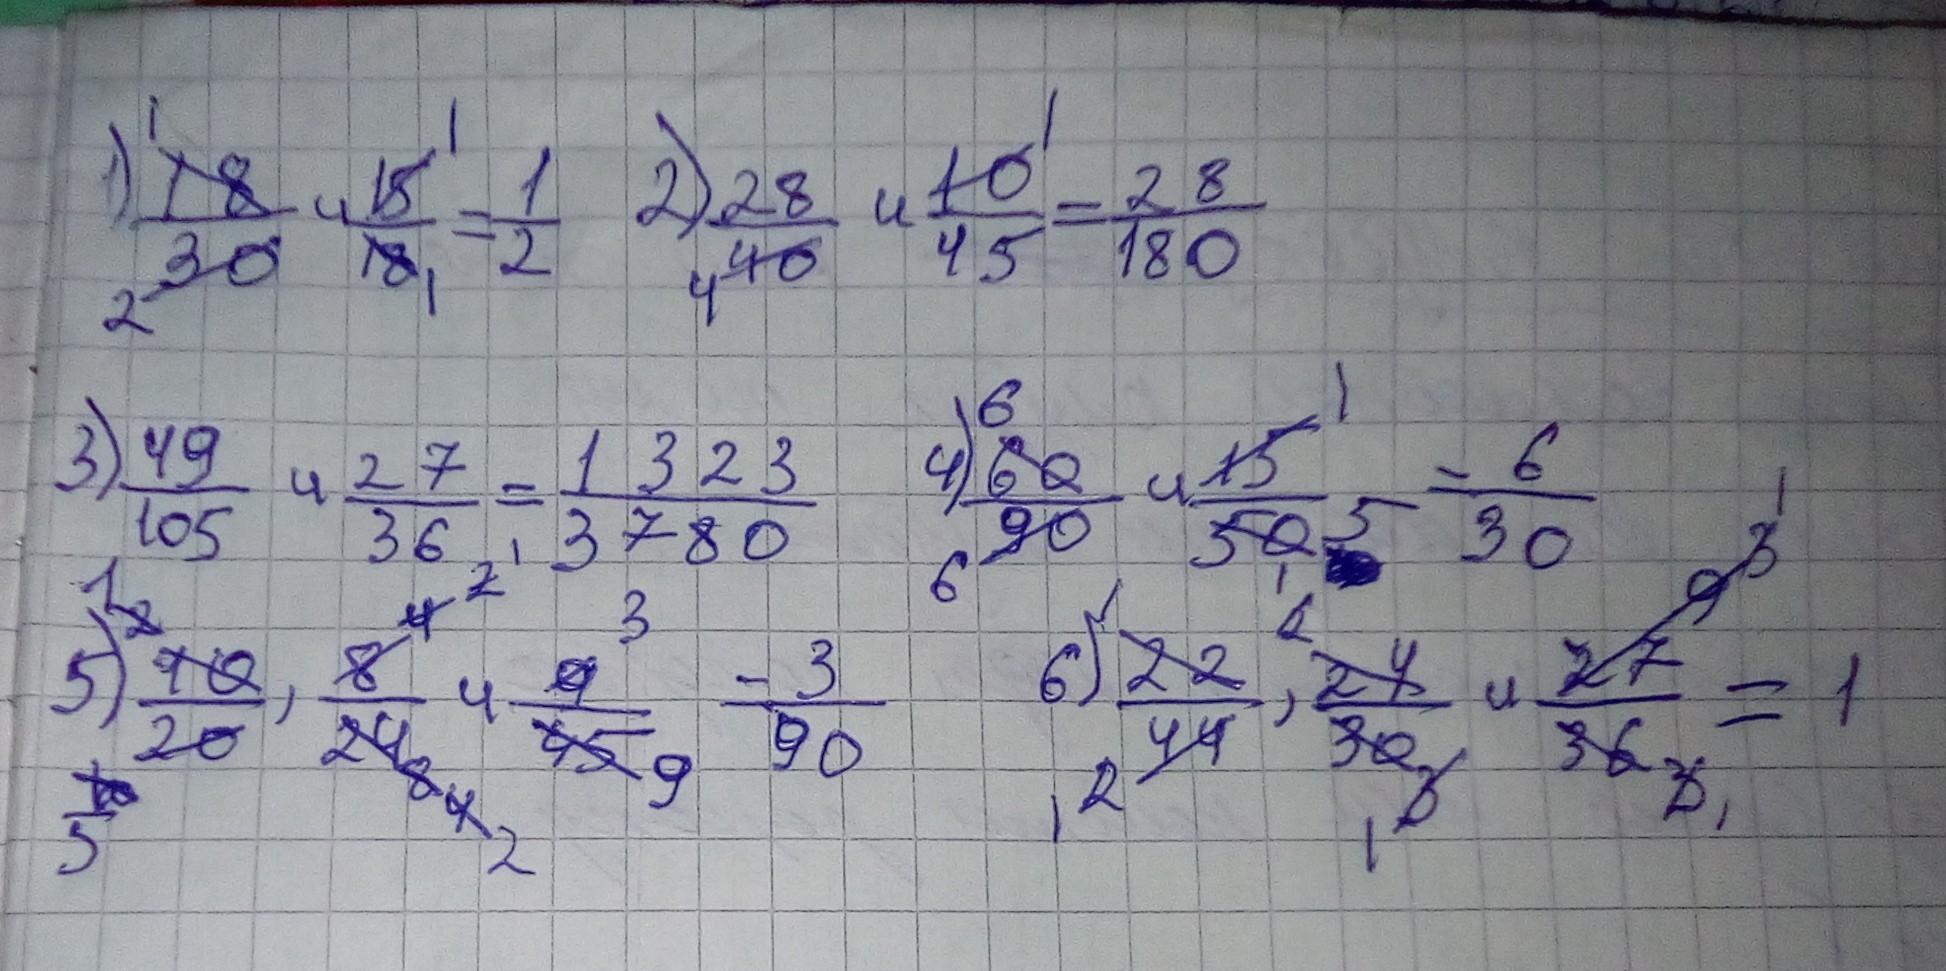 1) 18/30 и 15/18 = 1/2 2) 28/40 и 10/45 = 28/180
3) 49/105 и 27/36 = 1323/3780 4) 60/90 и 15/50 = 6/30
5) 10/20, 8/24 и 9/45 = 3/90 6) 22/44, 24/30 и 27/36 = 1